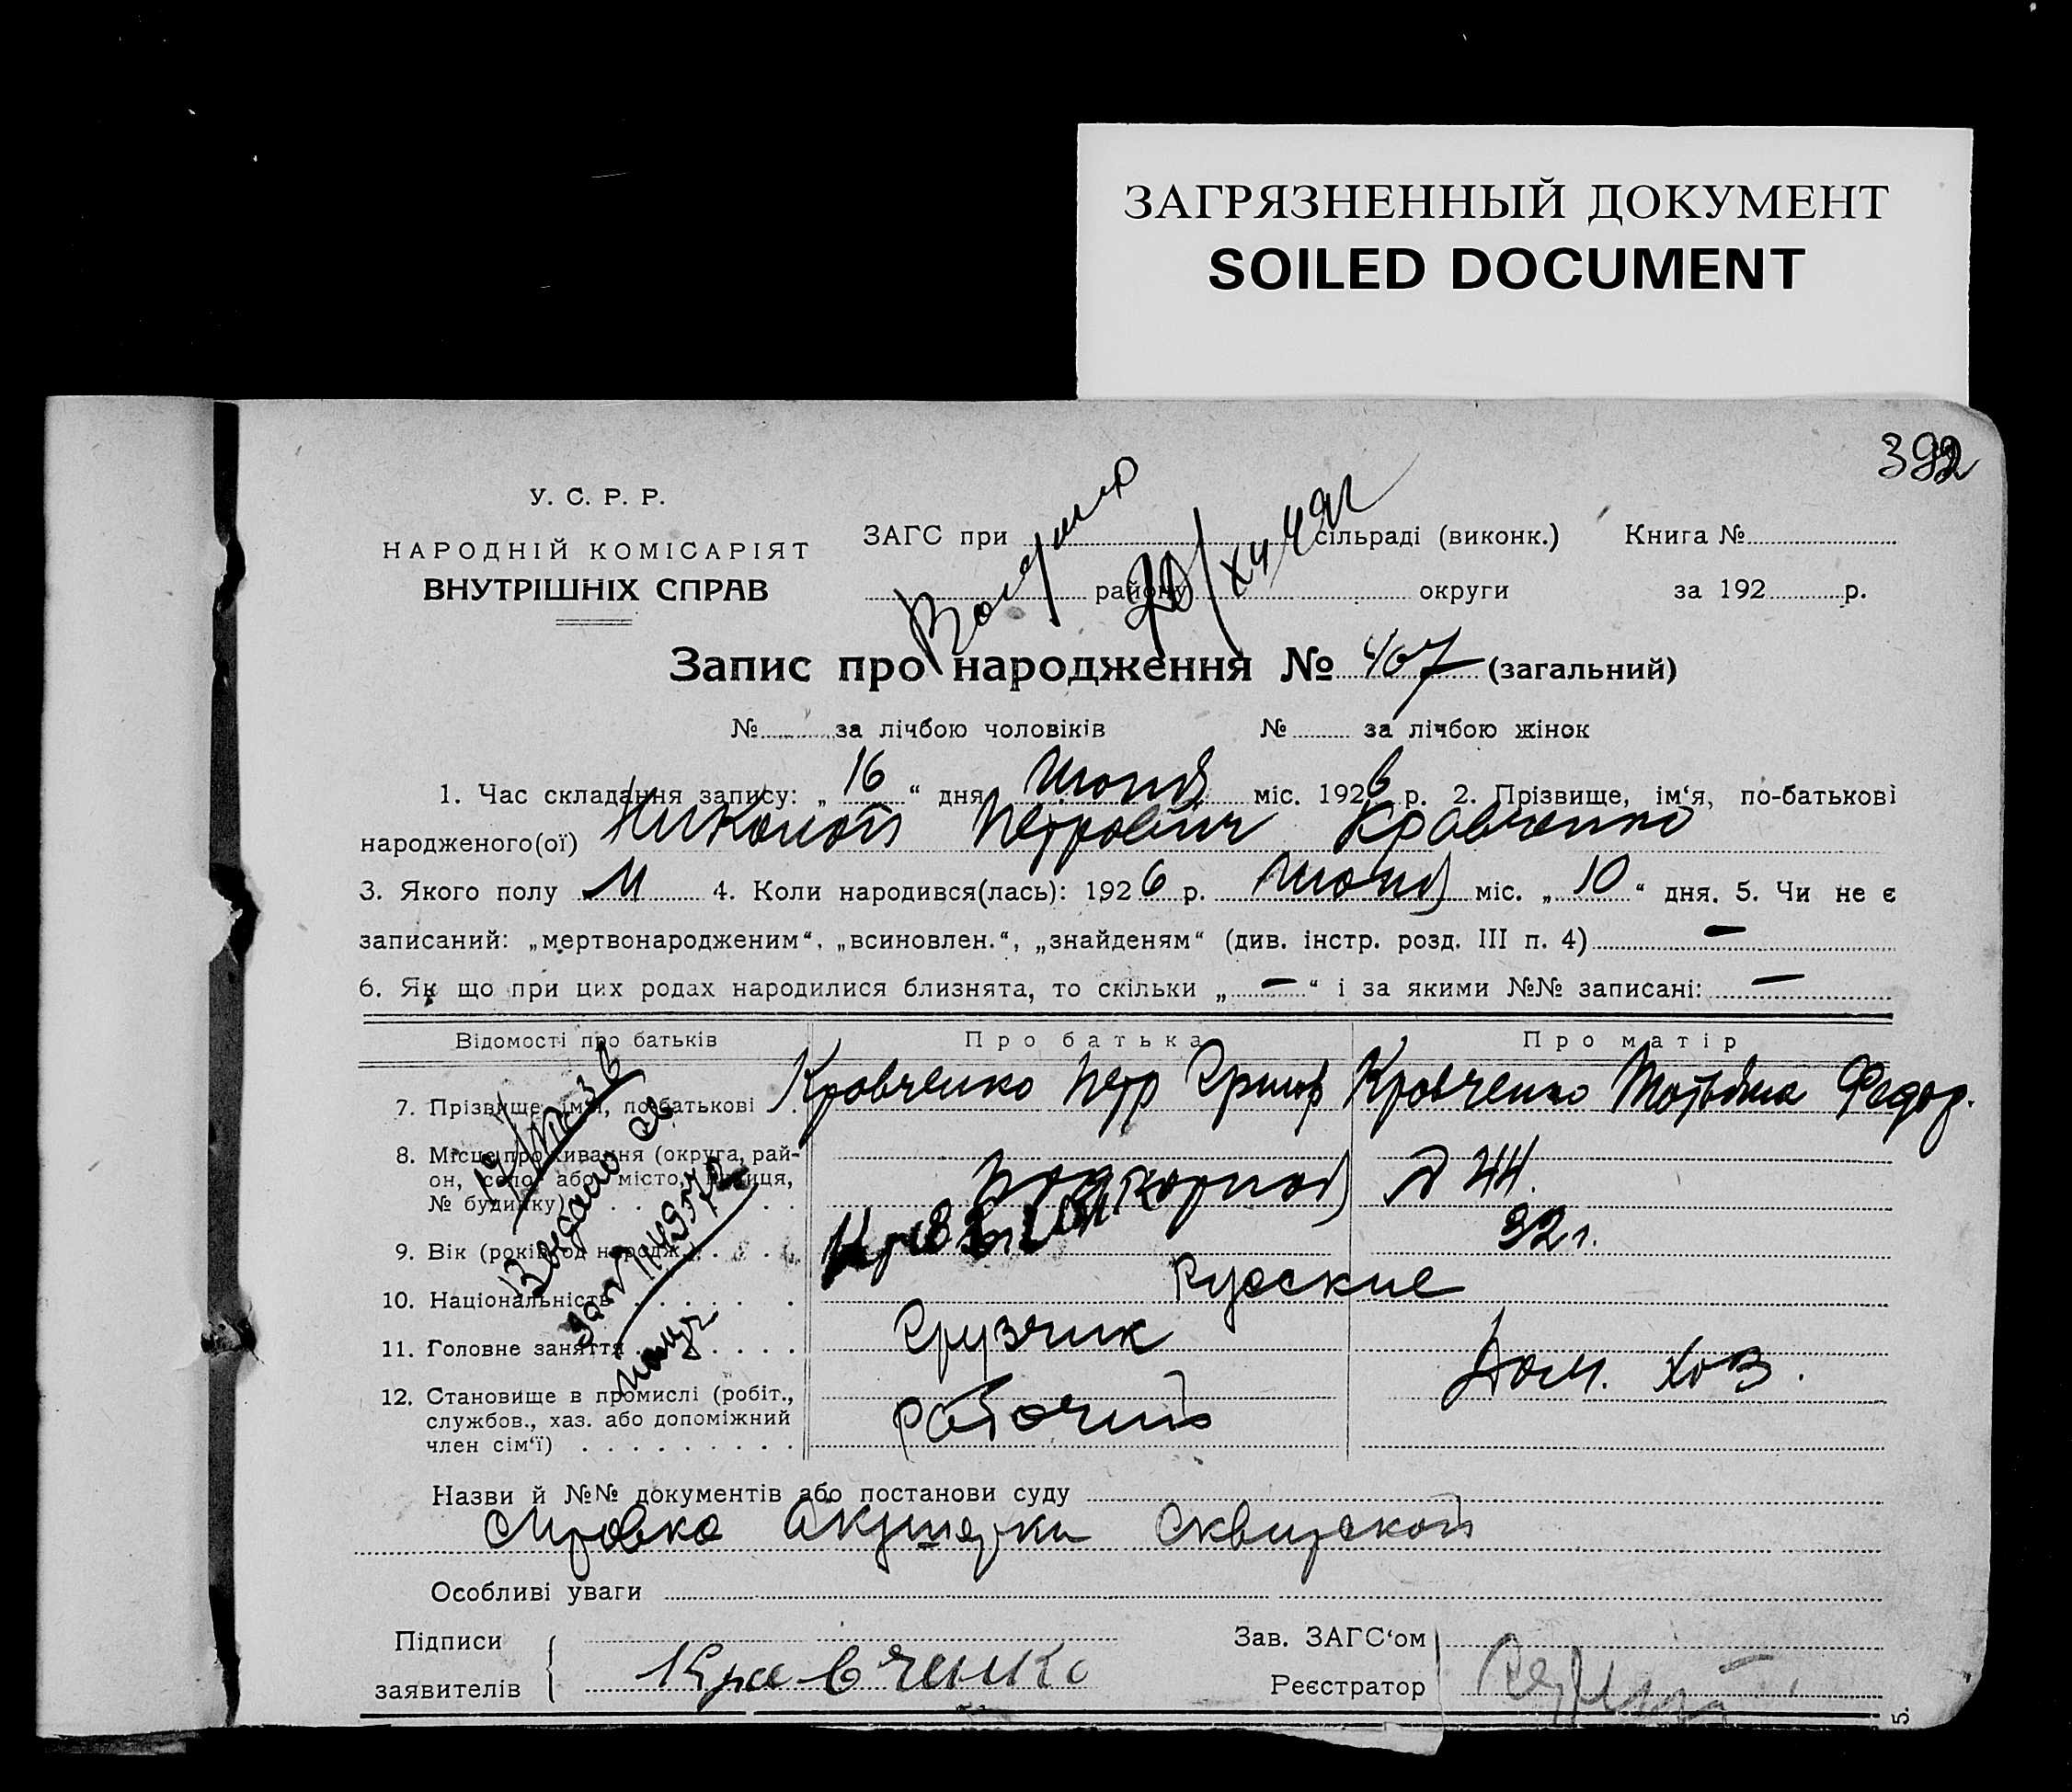 ЗАГРЯЗНЕННЫЙ ДОКУМЕНТ
SOILED DOCUMENT
392
У. С. Р. Р.
НАРОДНІЙ КОМІСАРІЯТ
ВНУТРІШНІХ СПРАВ
ЗАГС при сільраді (виконк.) Книга №
району округи за 192 р.
Запис про народження № 407 (загальний)
№ за лічбою чоловіків № за лічбою жінок
1. Час складання запису: „ 16 “ дня Июня міс. 1926 р. 2. Прізвище, ім‘я, по-батькові
народженого(ої) Николай Петрович Кравченко
3. Якого полу М 4. Коли народився(лась): 1926 р. Июня міс. „ 10 “ дня. 5. Чи не є
записаний: „мертвонародженим“, „всиновлен.“, „знайденям“ (див. інстр. розд. III п. 4) —
6. Як що при цих родах народилися близнята, то скільки „ — “ і за якими №№ записані: —
Відомості про батьків Про батька Про матір
7. Прізвище, ім‘я, по-батькові Кравченко Петр Григ Кравченко Татьяна Федор.
8. Місце проживання (округа, рай-
он, село або місто, вулиця,
№ будинку) Подгорная д 44.
9. Вік (років од народж.) 32 г.
10. Національність Русские
11. Головне заняття Грузчик Дом. хоз.
12. Становище в промислі (робіт.,
службов., хаз. або допоміжний
член сім‘ї) рабочий
Назви й №№ документів або постанови суду
Справка Акушерки Сквирской
Особливі уваги
Підписи Зав. ЗАГС‘ом
заявителів Кравченко Реєстратор
5.